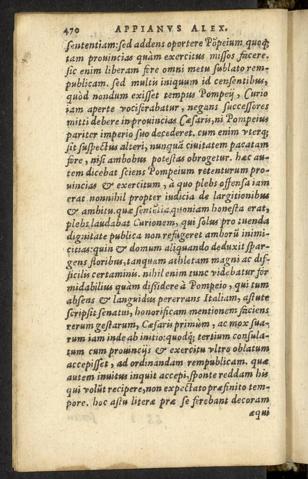 470 APPIANVS ALEX.
sententiam: sed addens oportere Pōpeium quoq;
tam prouincias quàm exercitus missos facere.
sic enim liberam fore omni metu sublato rem-
publicam. sed multis iniquum id censentibus,
quòd nondum exisset tempus Pompeij, Curio
iam aperte vociferabatur, negans successores
mitti debere in prouincias Cæsaris, ni Pompeius
pariter imperio suo decederet. cum enim vterq;
sit suspectus alteri, nunquā ciuitatem pacatam
fore, nisi ambobus potestas abrogetur. hæc au-
tem dicebat sciens Pompeium retenturum pro-
uincias & exercitum, a quo plebs offensa iam
erat nonnihil propter iudicia de largitionibus
& ambitu. quæ sentētia quoniam honesta erat,
plebs laudabat Curionem, qui solus pro tuenda
dignitate publica non refugeret amborū inimi-
citias: quin & domum aliquando deduxit spar-
gens floribus, tanquam athletam magni ac dif-
ficilis certaminis. nihil enim tunc videbatur for
midabilius quàm dissidere à Pompeio, qui tum
absens & languidus pererrans Italiam, astute
scripsit senatui, honorificam mentionem faciens
rerum gestarum, Cæsaris primùm, ac mox sua-
rum iam inde ab initio: quodq; tertium consula-
tum cum prouincijs & exercitu vltro oblatum
accepisset, ad ordinandam rempublicam. quæ
autem inuitus inquit accepi, sponte reddam his
qui volūt recipere, non expectato præfinito tem-
pore. hoc astu literæ præ se ferebant decoram
æqui